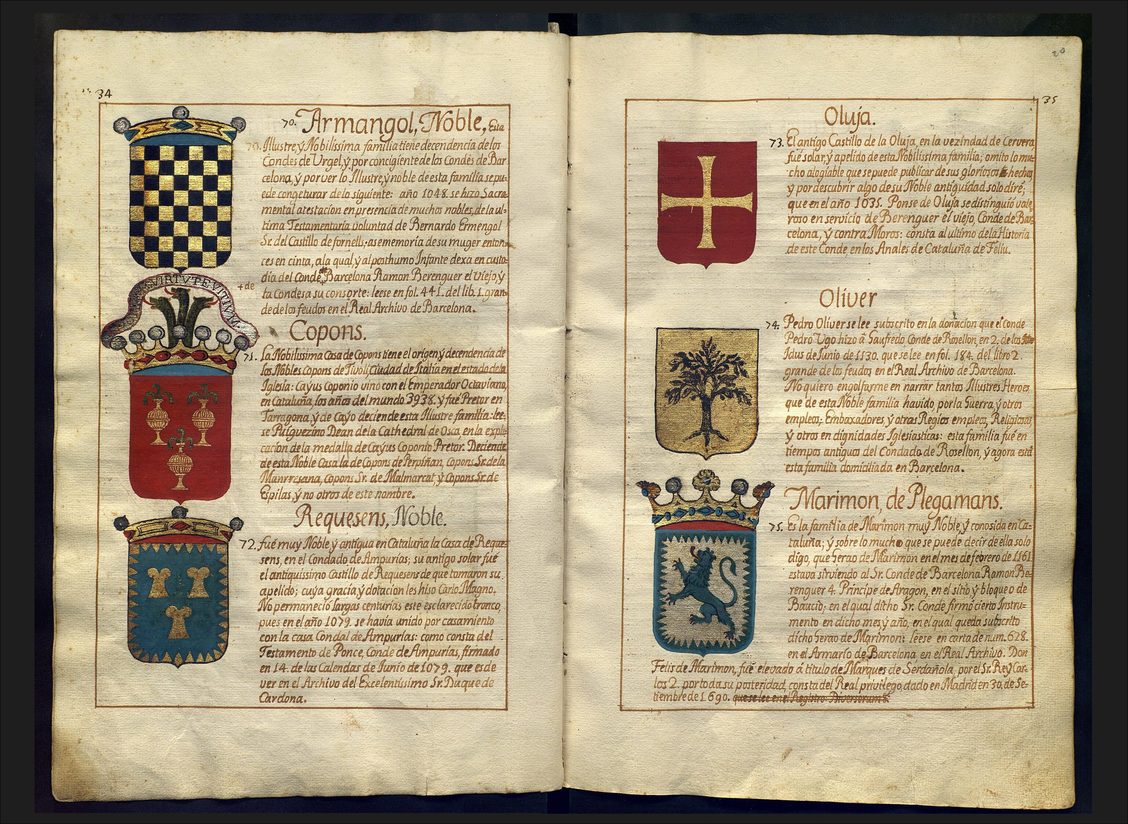 34
70. Armangol, Noble, Esta
Illustre, y Nobilissima familia tiene decendencia de los
Condes de Urgel, y por concigiente de los Condes de Bar
celona, y por ver lo Illustre, y noble de esta familia se pu
ede congeturar de lo siguiente: año 1048. se hizo Sacra
mental atestacion en presencia de muchos nobles, de la ul
tima Testamentaria voluntad de Bernardo Ermengol
Sr. del Castillo de fornells, ase memoria de su muger enton
ces en cinta, a la qual, y al posthumo Infante dexa en custo
dia del Conde Barcelona Ramon Berenguer el Viejo, y
+ de
la Condesa su consorte: leese en fol. 441. del lib. 1. gran
de de los feudos en el Real Archivo de Barcelona.
VIRTUTE
Copons.
71. La Nobilissima Casa de Copons tiene el origen, y decendencia de
los Nobles Copons de Tivoli, Ciudad de Italia en el estado de la
Iglesia: Cayus Coponio vino con el Emperador Octaviano,
en Cataluña, los años del mundo 3938. y fué Pretor en
Tarragona, y de Cayo deciende esta Illustre familia: lee
se Priguezino Dean de la Cathedral de Osca, en la expli
cacion de la medalla de Cayus Coponio Pretor. Deciende
de esta Noble Casa la de Copons de Perpiñan, Copons Sr. de la
Manresana, Copons Sr. de Malmarcat, y Copons Sr. de
Espilas, y no otros de este nombre.
Requesens, Noble.
72. fué muy Noble, y antigua en Cataluña la Casa de Reque
sens, en el Condado de Ampurias; su antigo solar fué
el antiquissimo Castillo de Requesens de que tomaron su
apelido; cuya gracia, y dotacion les hiso Carlo Magno.
No permaneció largas centurias este esclarecido tronco,
pues en el año 1079. se havia unido por casamiento
con la casa Condal de Ampurias: como consta del
Testamento de Ponce, Conde de Ampurias, firmado
en 14. de las Calendas de Junio de 1079. que es de
ver en el Archivo del Excelentissimo Sr. Duque de
Cardona.
20
35
Oluja.
73. El antigo Castillo de la Oluja, en la vezindad de Cervera,
fué solar, y apelido de esta Nobilissima familia; omito lo mu
cho alogiable que se puede publicar de sus gloriosos hechos
y por descubrir algo de su Noble antiguidad solo diré,
que en el año 1035. Ponse de Oluja se distinguió vale
roso en servicio de Berenguer el viejo, Conde de Bar
celona, y contra Moros: consta al ultimo de la Historia
de este Conde en los Anales de Cataluña de Feliu.
Oliver
74. Pedro Oliver se lee subscrito en la donacion que el Conde
Pedro Ugo hizo á Gaufredo Conde de Rosellon, en 2. de los
Idus de Junio de 1130. que se lee en fol. 184. del libro 2
grande de los feudos en el Real Archivo de Barcelona.
No quiero engolfarme en narrar tantos Illustres Heroes,
que de esta Noble familia havido, por la Guerra, y otros
empleos; Embaxadores, y otros Regios empleos, Religiosos,
y otros en dignidades Iglesiasticas: esta familia fué en
tiempos antiguos del Condado de Rosellon, y agora esta
esta familia domiciliada en Barcelona.
Marimon, de Plegamans.
75. Es la familia de Marimon muy Noble, y conosida en Ca
taluña; y sobre lo mucho que se puede decir de ella solo
digo, que Gerao de Marimon en el mes de febrero de 1161
estava sirviendo al Sr. Conde de Barcelona Ramon Be
renguer 4. Principe de Aragon, en el sitio, y bloqueo de
Baucio; en el qual dicho Sr. Conde firmó cierto Instru
mento en dicho mes, y año, en el qual queda subscrito
dicho Gerao de Marimon: leese en carta de num. 628.
en el Armario de Barcelona en el Real Archivo. Don
Felis de Marimon, fué elevado a titulo de Marques de Serdañola, por el Sr. Rey Car
los 2. por toda su posteridad, consta del Real privilegio, dado en Madrid en 30. de Se
tiembre de 1690. que se lee en el Registro Diversorum